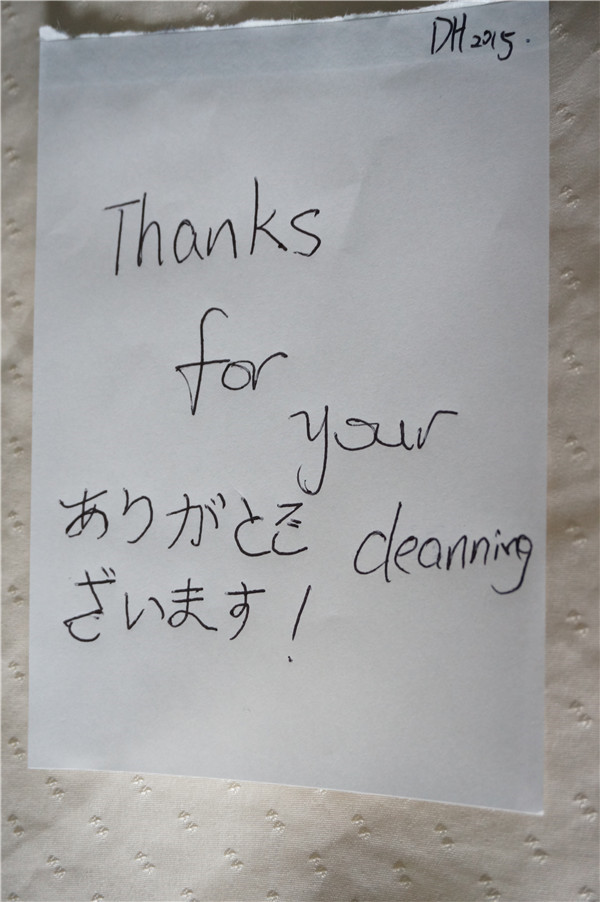 DH 2015.
Thanks
for
your
cleanning
ありがとご
ざいます!